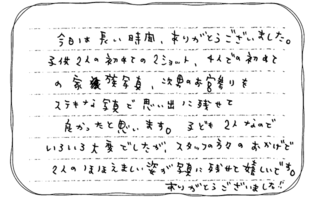 今日は長い時間、ありがとうございました。
子供2人の初めての2ショット、4人での初めて
の家族写真、次男のお宮参りを
ステキな写真で思い出に残せて
良かったと思います。子ども2人なので
いろいろ大変でしたが、スタッフの方々のおかげで
2人のほほえましい姿が写真に残せて嬉しいです。
ありがとうございました!